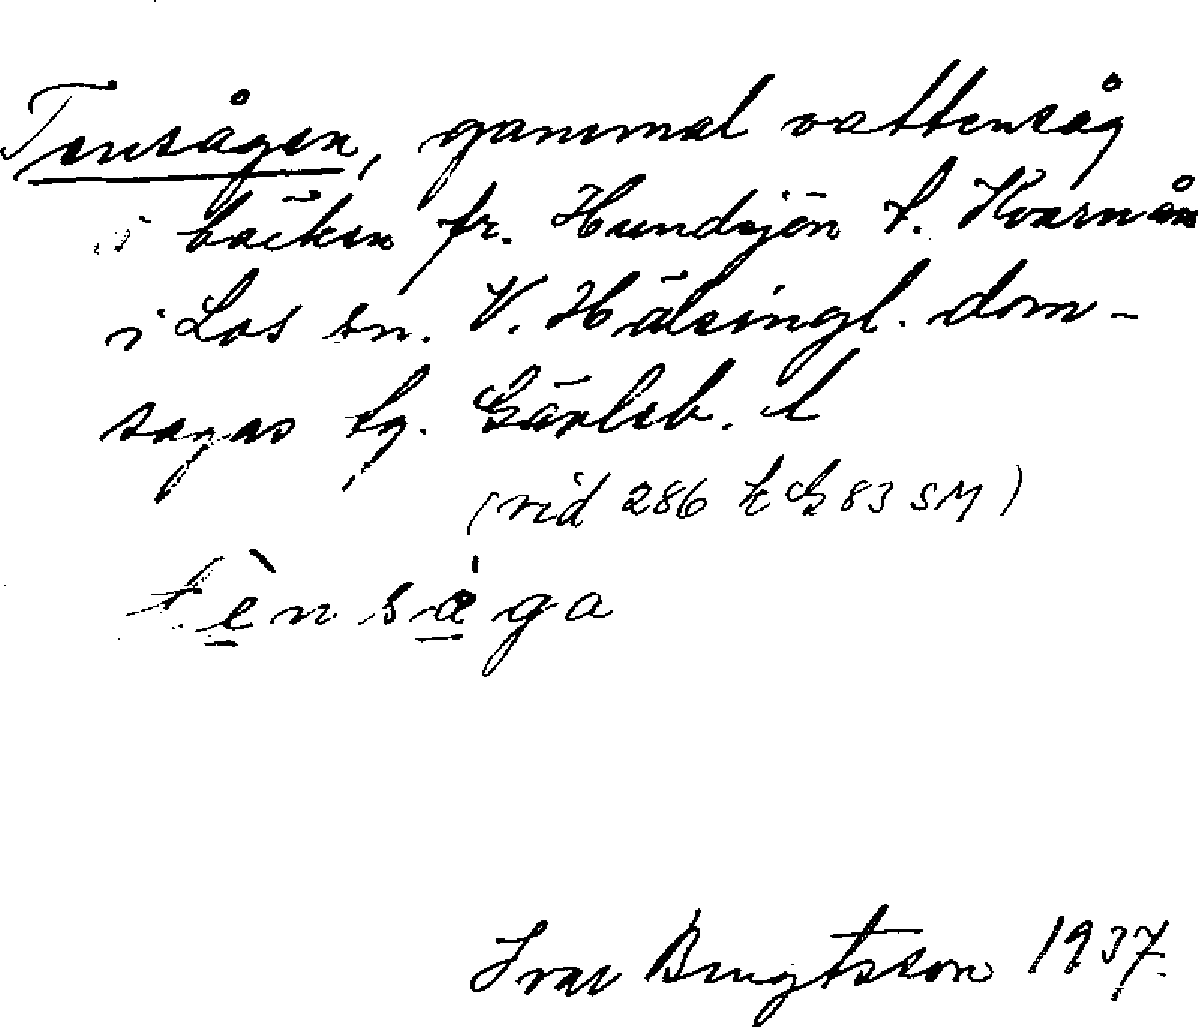 Tensågen, gammal vattensåg
i bäcken fr. Hundsjön t. Kvarnån
i Los sn. V. Hälsingl. dom-
sagas tg. Gävleb. l
(vid 286 k G 83 SM)
tènsåga
Ivar Bengtsson 1937.